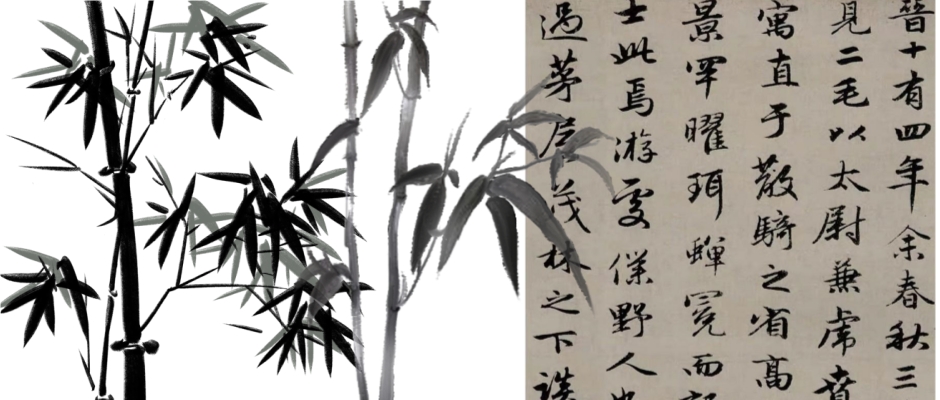 晉十有四年余春秋三
見二毛以太尉兼虎賁
寓直于散騎之省高
景罕曜珥蟬冕而
士此焉游處僕野人
過茅屋茂林之下談